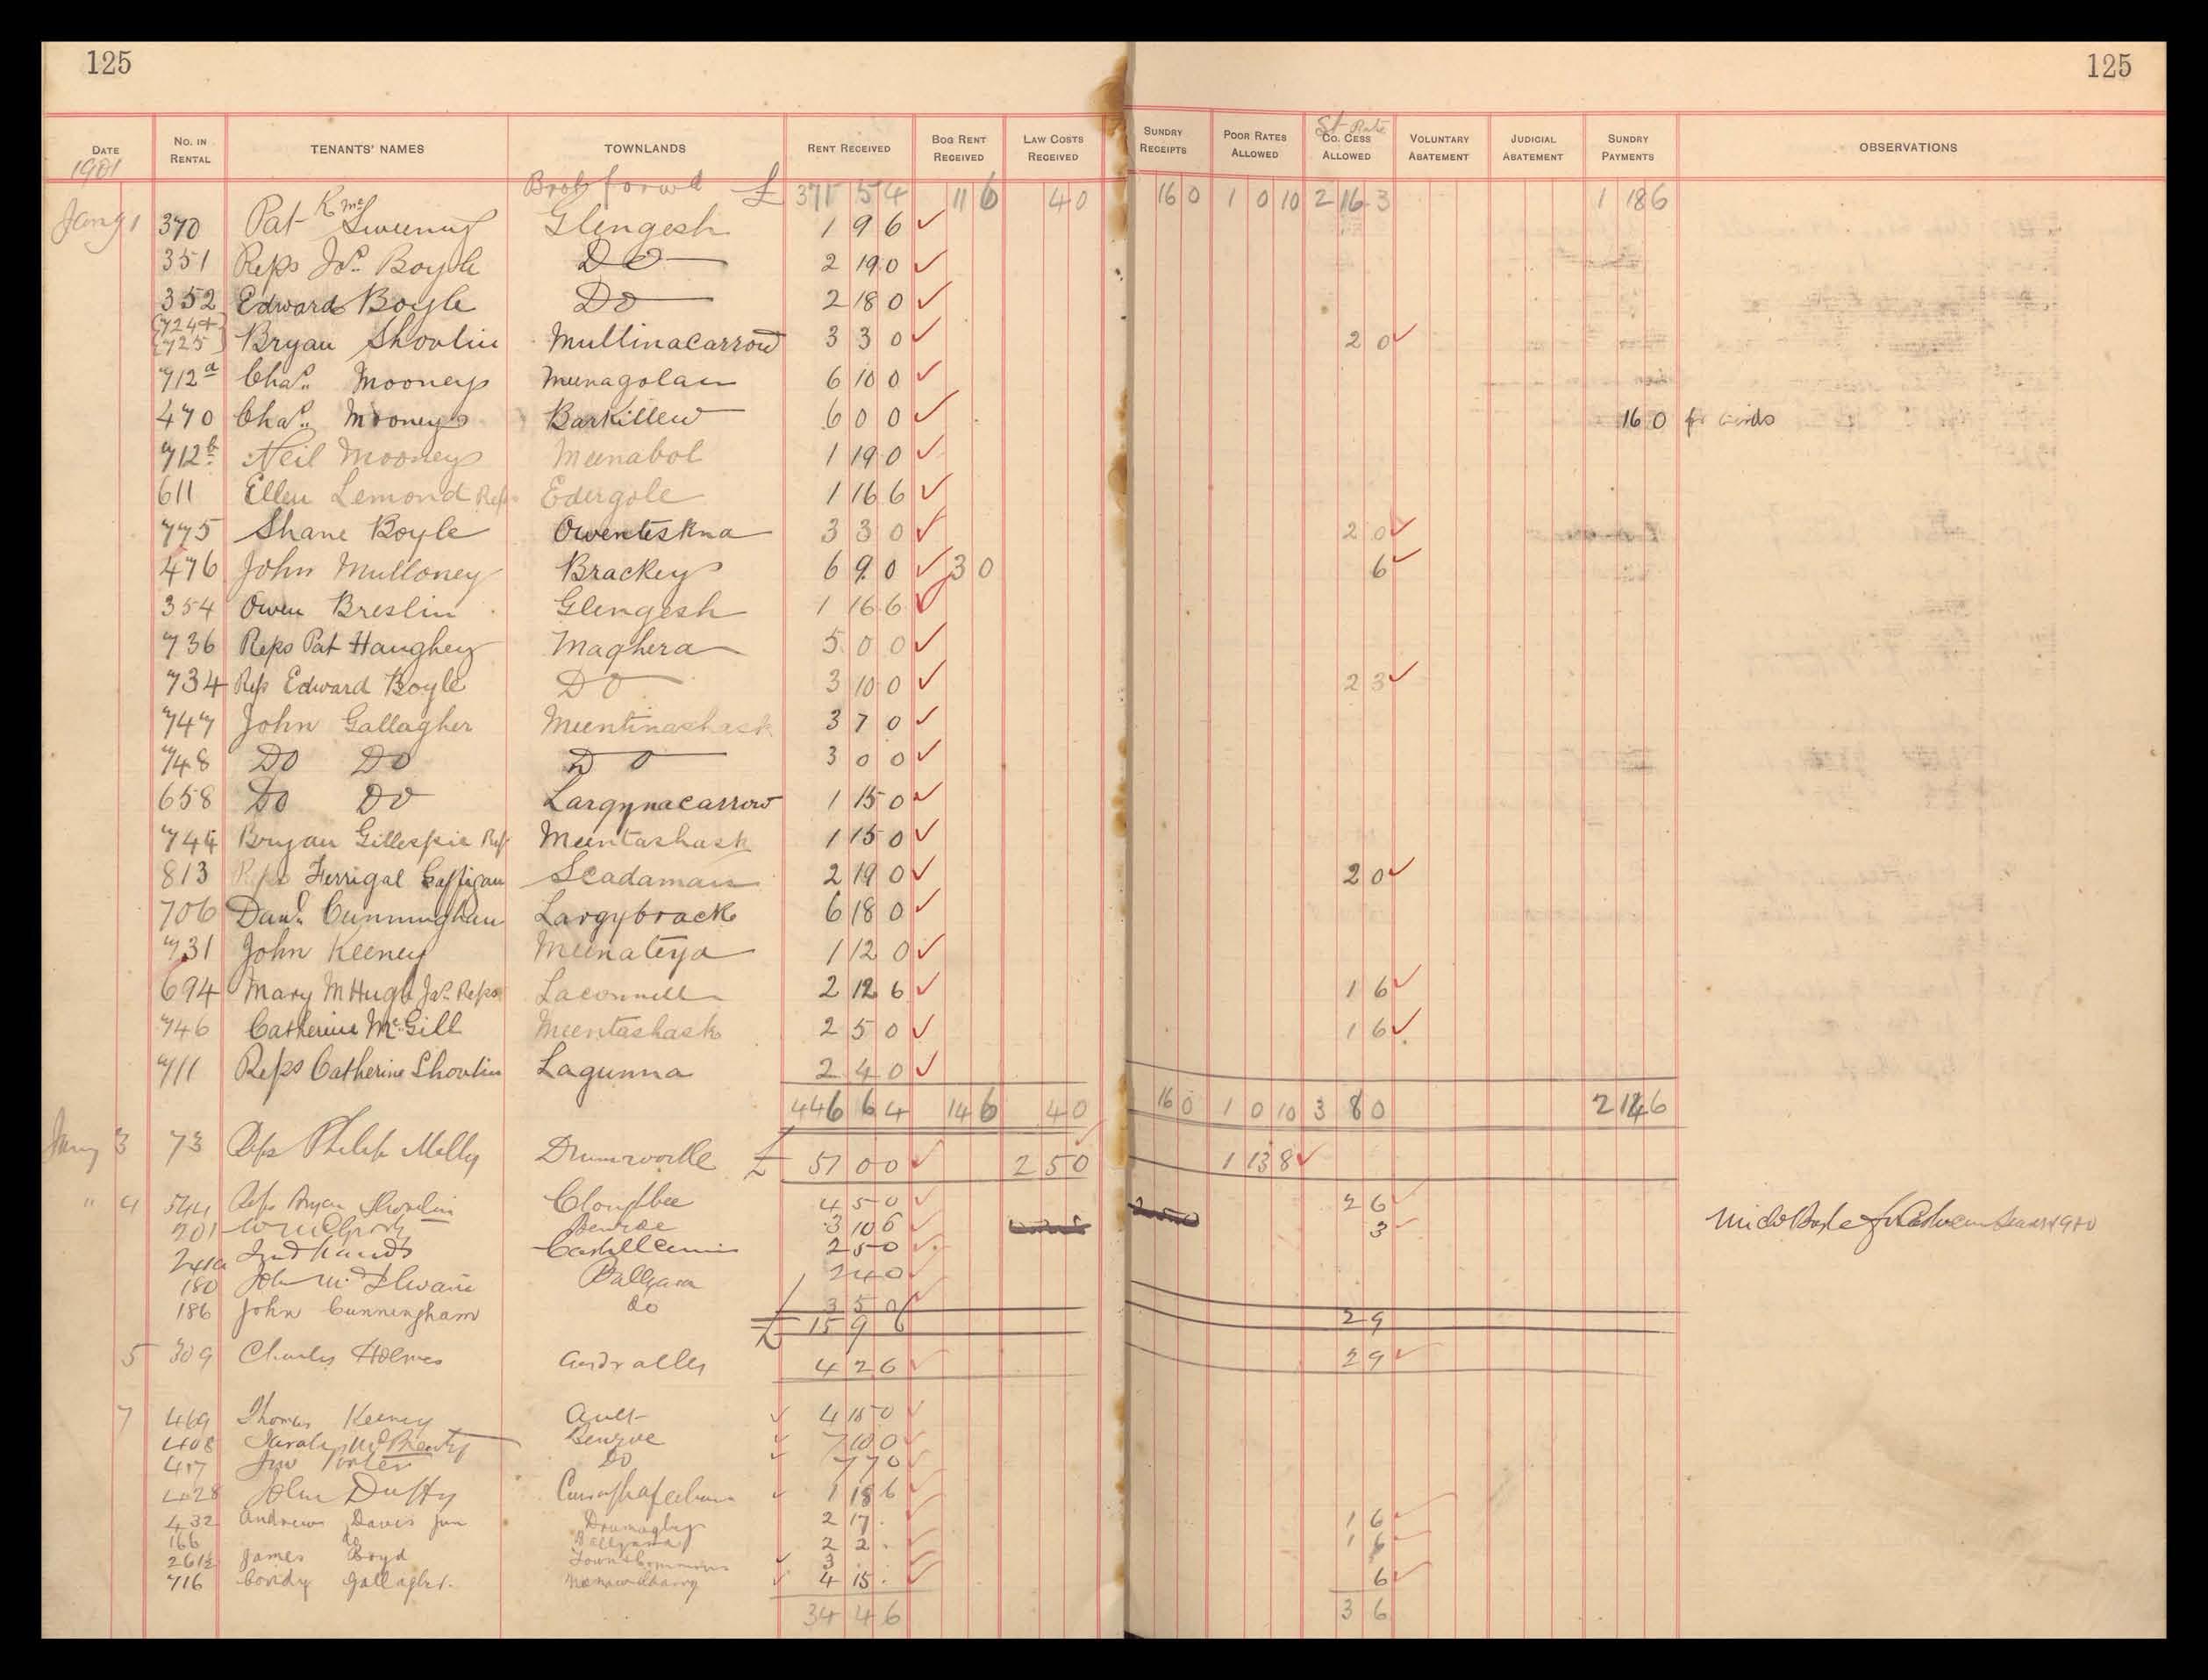 125 125
DATE NO. IN RENTAL TENANTS' NAMES TOWNLANDS RENT RECEIVED BOG RENT RECEIVED LAW COSTS RECEIVED SUNDRY RECEIPTS POOR RATES ALLOWED St Rate CO. CESS ALLOWED VOLUNTARY ABATEMENT JUDICIAL ABATEMENT SUNDRY PAYMENTS OBSERVATIONS
1901
Brot forwd £ 371 5 4 11 6 4 0 16 0 1 0 10 2 16 3 1 18 6
Jany 1 370 Pat K Mc Sweeney Glengesh 1 9 6
351 Reps Jas. Boyle Do 2 19 0
352 Edward Boyle Do 2 18 0
724+ 725 Bryan Shovlin Mullinacarrow 3 3 0 2 0
712a Chas. Mooney Meenagolan 6 10 0
470 Chas. Mooney Barkillew 6 0 0 16 0 for
712b Neil Mooney Meenabol 1 19 0
611 Ellen Lemond Reps Edergole 1 16 6
775 Shane Boyle Owenteskna 3 3 0 2 0
476 John Mulloney Brackey 6 9 0 3 0 6
354 Owen Breslin Glengesh 1 16 6
736 Reps Pat Haughey Maghera 5 0 0
734 Reps Edward Boyle Do 3 10 0 2 3
747 John Gallagher Meentinashask 3 7 0
748 Do Do Do 3 0 0
658 Do Do Largynacarrow 1 15 0
744 Bryan Gillespie Rep Meentashask 1 15 0
813 Reps Ferrigal Gaffigan Scadaman 2 19 0 2 0
706 Danl. Cunningham Largybrack 6 18 0
731 John Keeney Meenateya 1 12 0
694 Mary McHugh Jas. Reps Laconnell 2 12 6 1 6
746 Catherine McGill Meentashask 2 5 0 1 6
711 Reps Catherine Shovlin Lagunna 2 4 0
446 6 4 14 6 4 0 16 0 1 0 10 3 8 0 2 14 6
Jany 3 73 Reps Philip Melly £ 57 0 0 2 5 0 1 13 8
" 4 544 Reps Bryan Shovlin Cloughbee 4 5 0 2 6
201 3 10 6 3
241a 2 5 0
180 John McIlwain Ballyara 2 4 0
186 John Cunningham do 3 5 0
£ 15 9 6 2 9
5 309 Charles Holmes Ardralley 4 2 6 2 9
7 469 Thomas Keeney 4 15 0
408 Sarah McBrearty Benroe 7 10 0
417 Jno Porter Do 7 7 0
428 John Duffy 1 18 6
432 Andrew Davis Jun Drumaghy 2 17 . 1 6
166 do Ballyara 2 2 . 1 6
261½ James Boyd Towns Commons 3 . .
716 Condy Gallagher 4 15 . 6
34 4 6 3 6